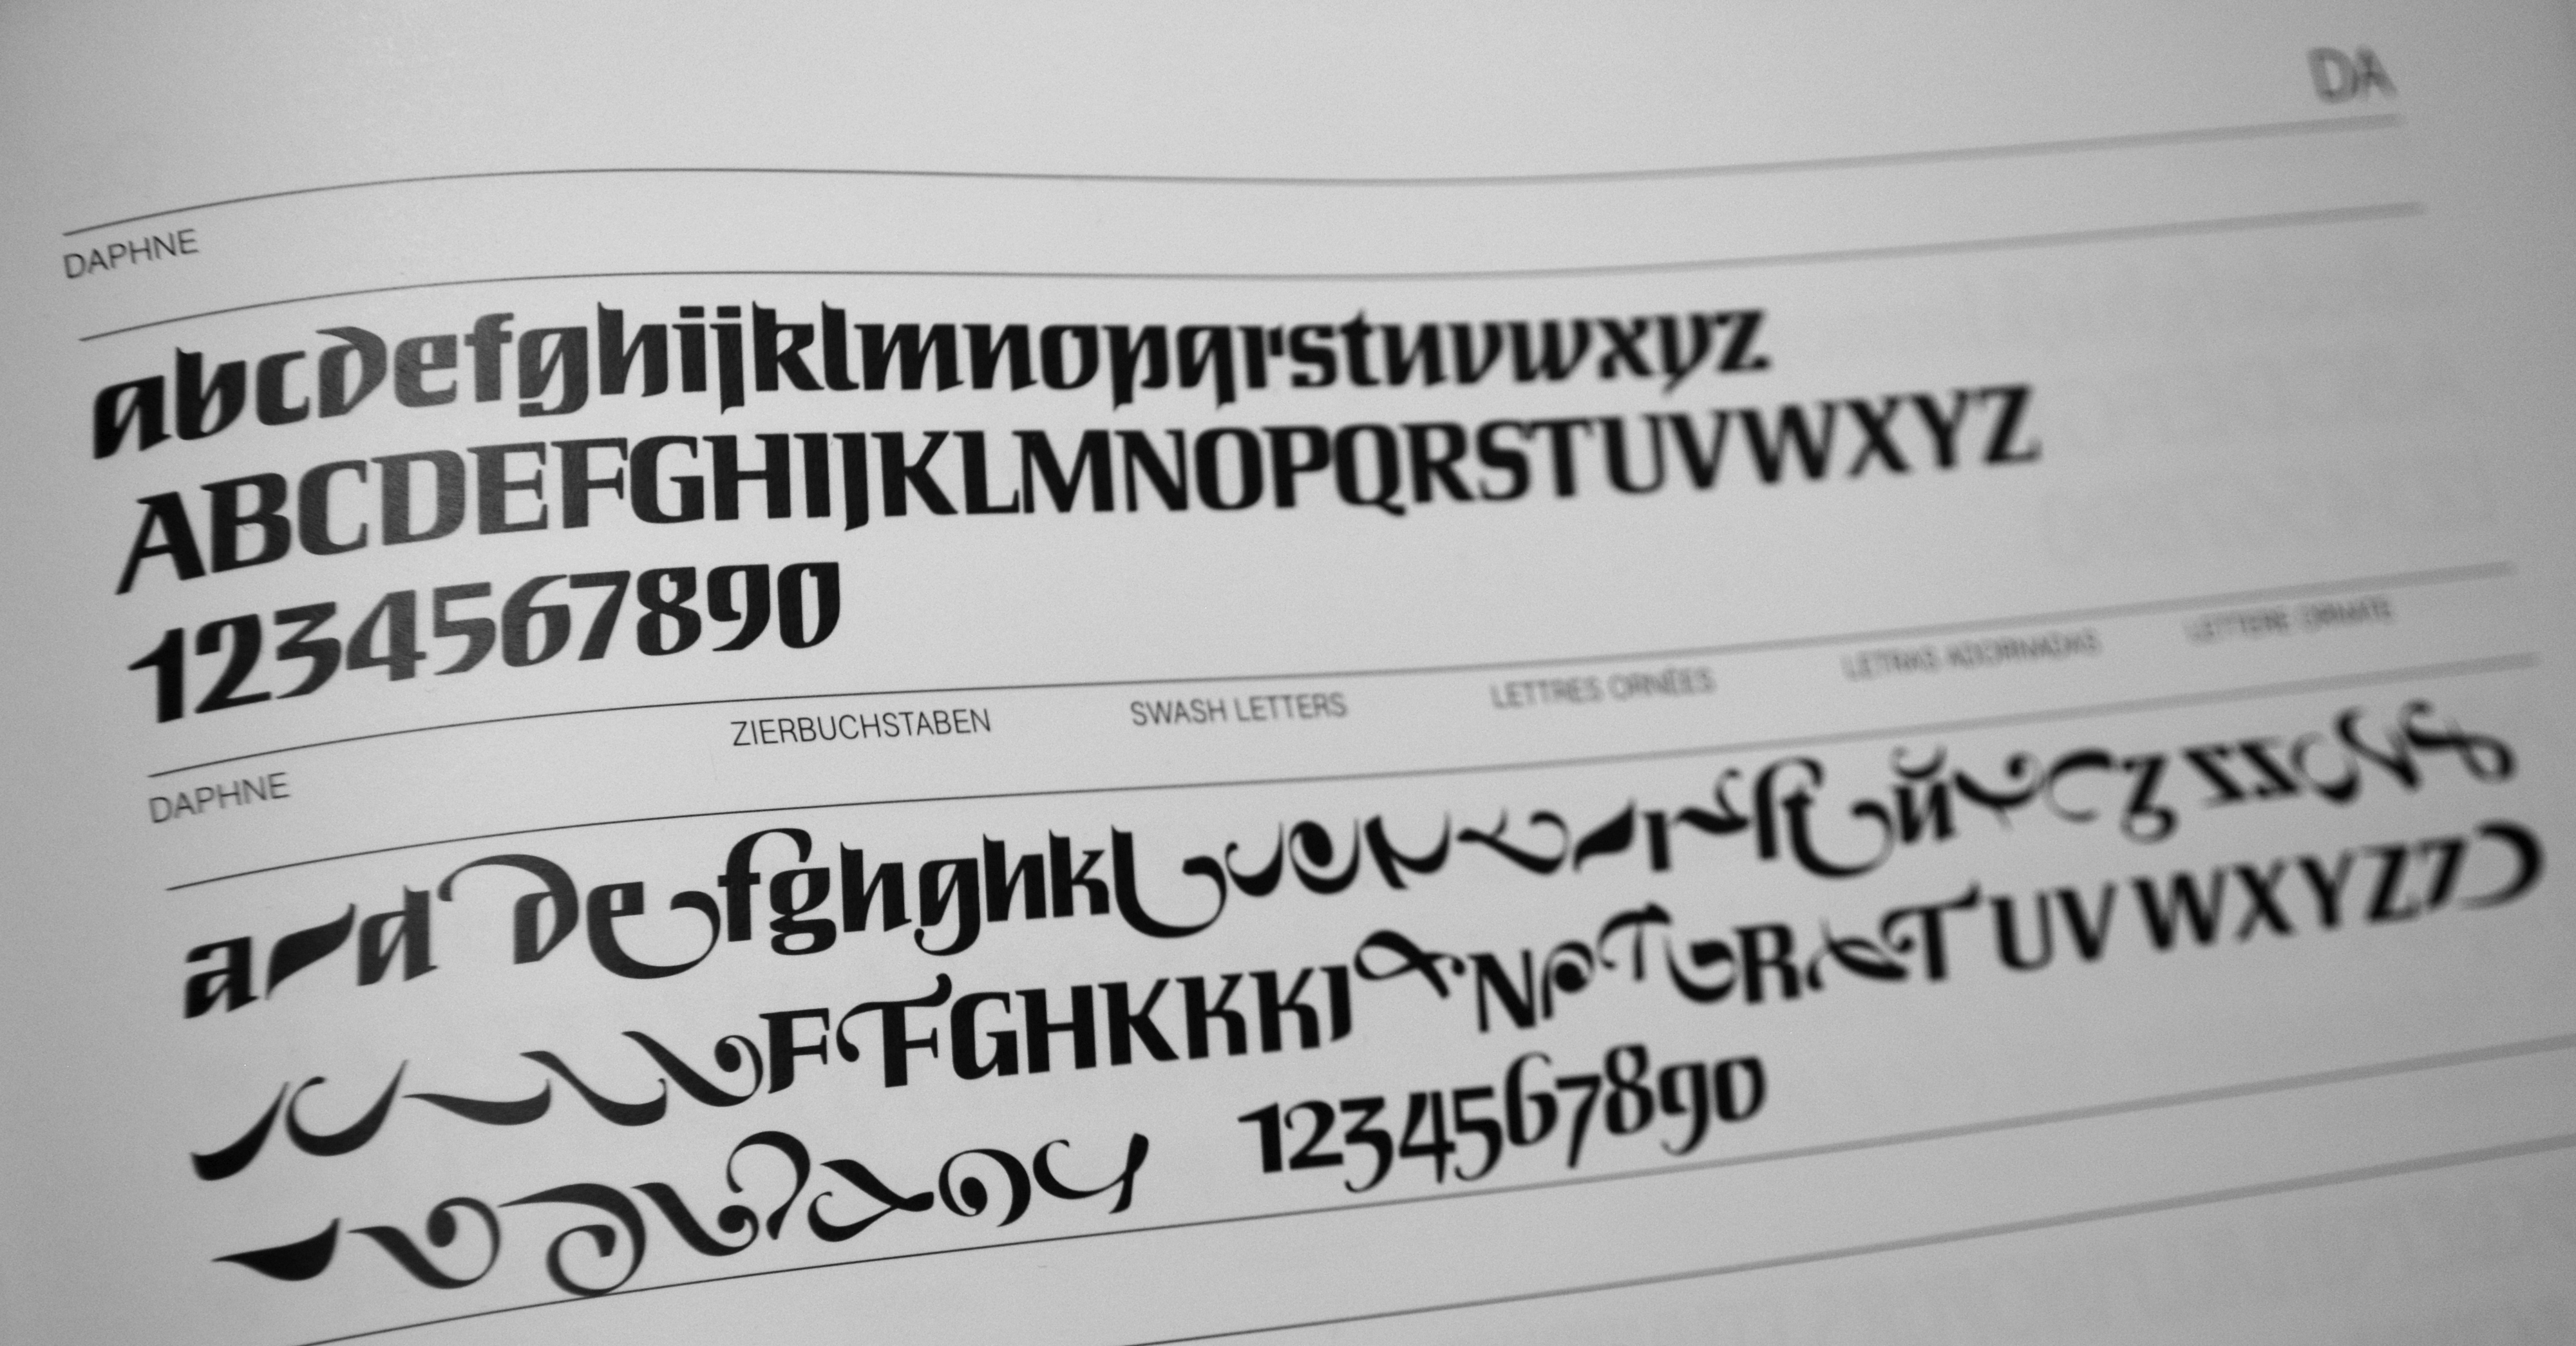 DA
DAPHNE
abcdefghijklmnopqrstuvwxyz
ABCDEFGHIJKLMNOPQRSTUVWXYZ
1234567890
DAPHNE ZIERBUCHSTABEN SWASH LETTERS LETTRES ORNÉES LETRAS ADORNADAS LETTERE ORNATE
a d de fghghk
F F G H K K K I N R T U V W X Y Z
1234567890